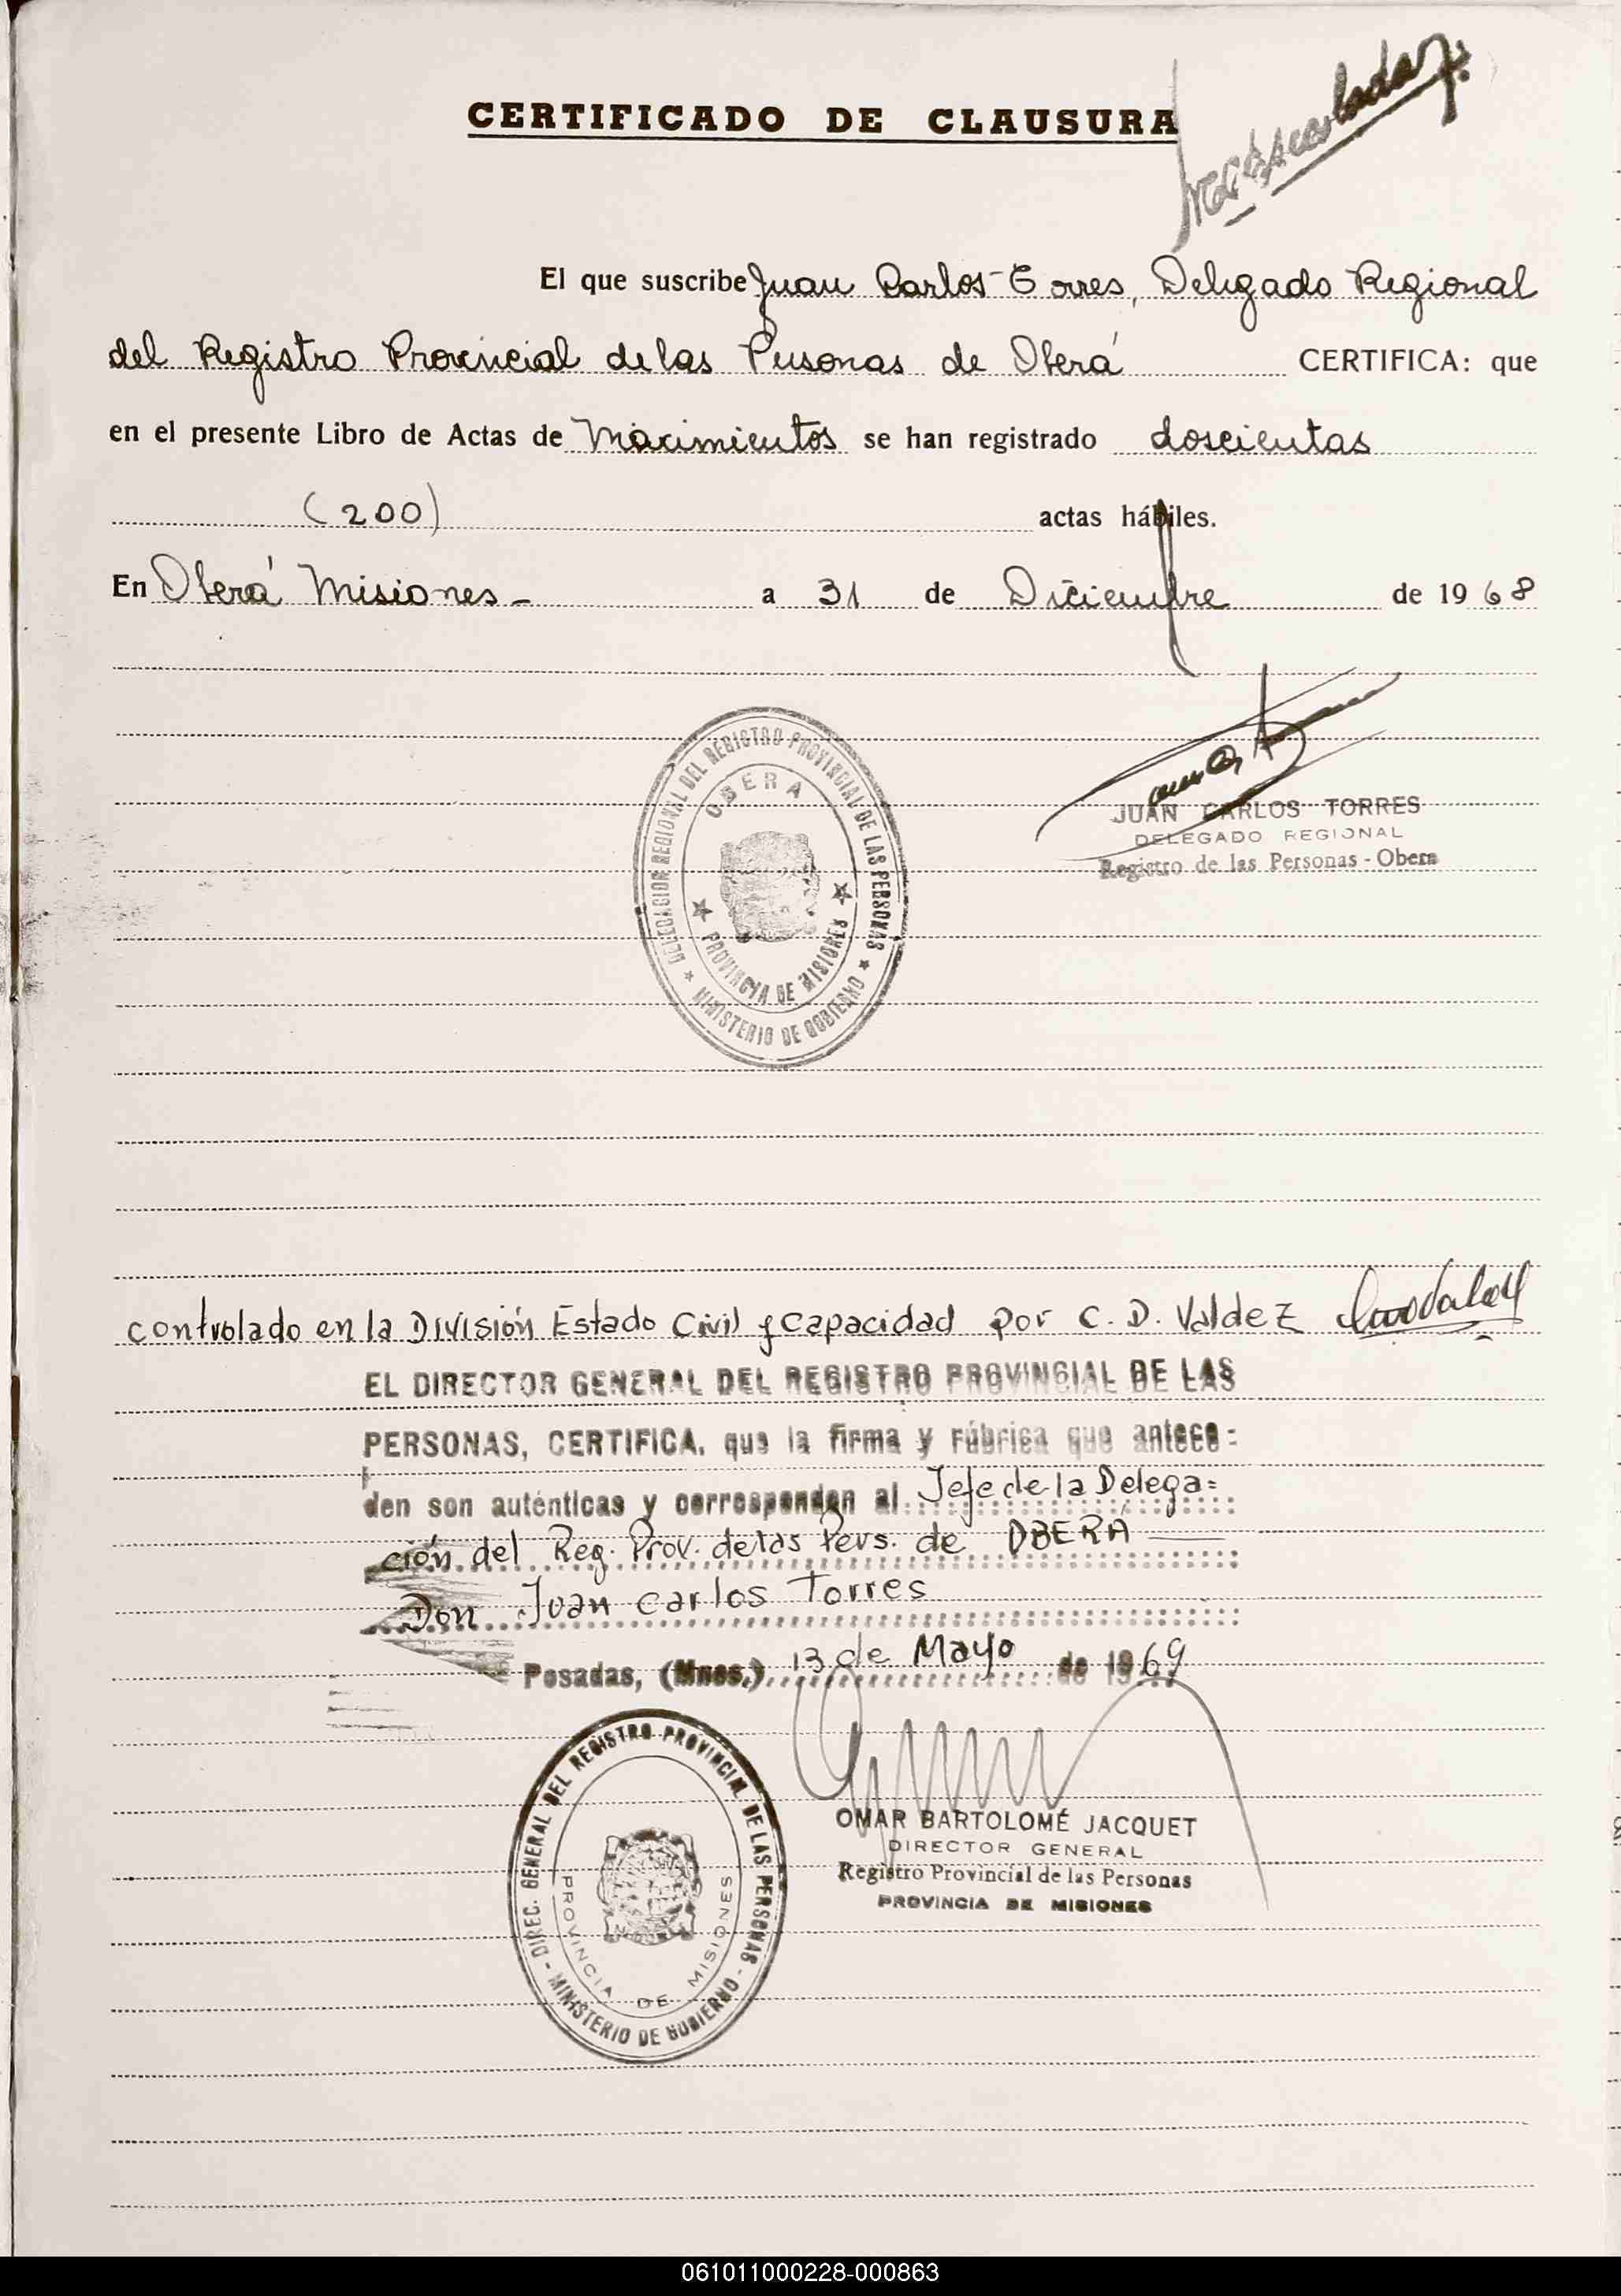 CERTIFICADO DE CLAUSURA
El que suscribe Juan Carlos Torres, Delegado Regional
del Registro Provincial de las Personas de Oberá CERTIFICA: que
en el presente Libro de Actas de Nacimientos se han registrado doscientas
(200) actas hábiles.
En Oberá Misiones - a 31 de Diciembre de 1968
DELEGACION REGIONAL DEL REGISTRO PROVINCIAL DE LAS PERSONAS
OBERA
PROVINCIA DE MISIONES
MINISTERIO DE GOBIERNO
JUAN CARLOS TORRES
DELEGADO REGIONAL
Registro de las Personas - Obera
controlado en la División Estado Civil y Capacidad por C. D. Valdez
EL DIRECTOR GENERAL DEL REGISTRO PROVINCIAL DE LAS
PERSONAS, CERTIFICA, que la firma y rúbrica que antece=
den son auténticas y corresponden al Jefe de la Delega=
ción del Reg. Prov. de las Pers. de OBERÁ
Don Juan Carlos Torres
Posadas, (Mnes.) 13 de Mayo de 1969
DIREC. GENERAL DEL REGISTRO PROVINCIAL DE LAS PERSONAS - MINISTERIO DE GOBIERNO -
PROVINCIA DE MISIONES
OMAR BARTOLOMÉ JACQUET
DIRECTOR GENERAL
Registro Provincial de las Personas
PROVINCIA DE MISIONES
061011000228-000863